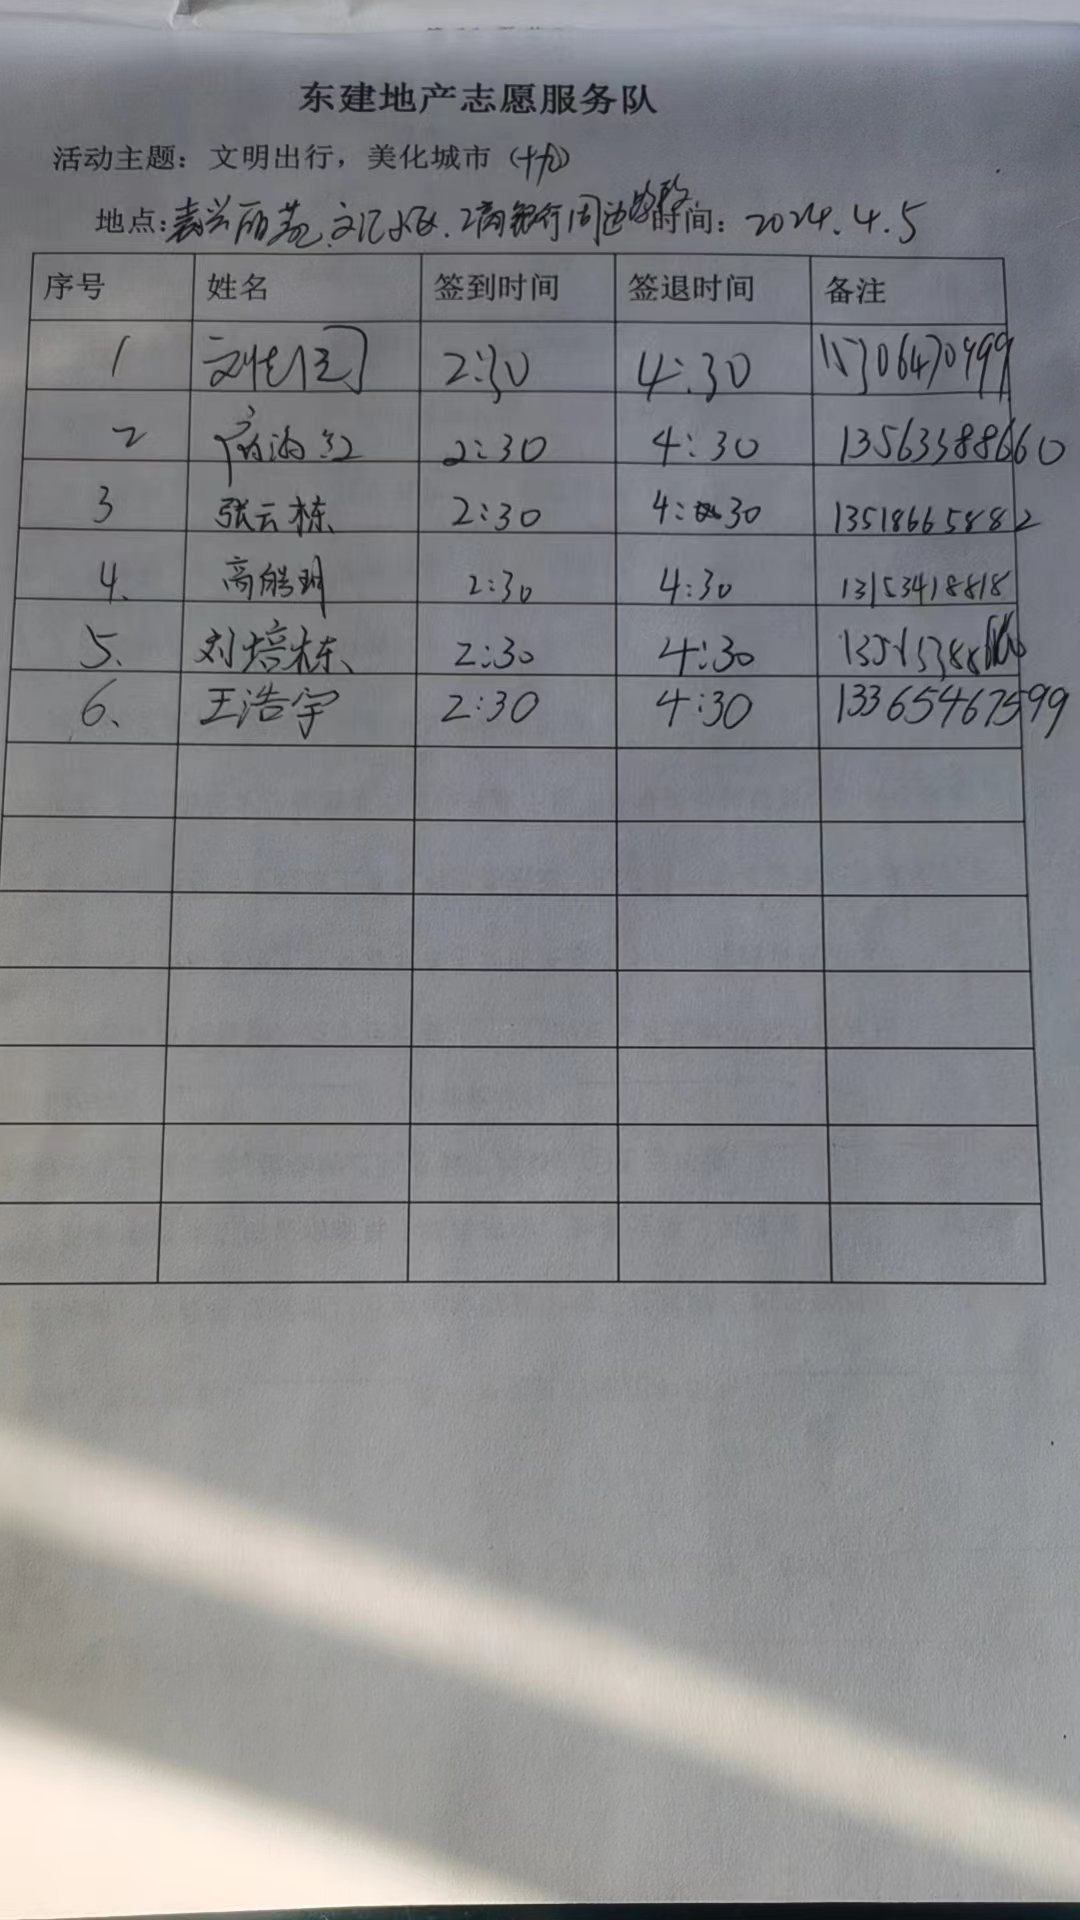 东建地产志愿服务队
活动主题：文明出行，美化城市（十九）
地点：嘉兴丽苑、文汇 工商银行周边 时间：2024.4.5
序号 姓名 签到时间 签退时间 备注
1 2:30 4:30 15306470999
2 2:30 4:30 13563388660
3 张云栋 2:30 4:30 13518665882
4、 高皓玥 2:30 4:30 13153418818
5、 刘培栋 2:30 4:30
6、 王浩宇 2:30 4:30 13365467599